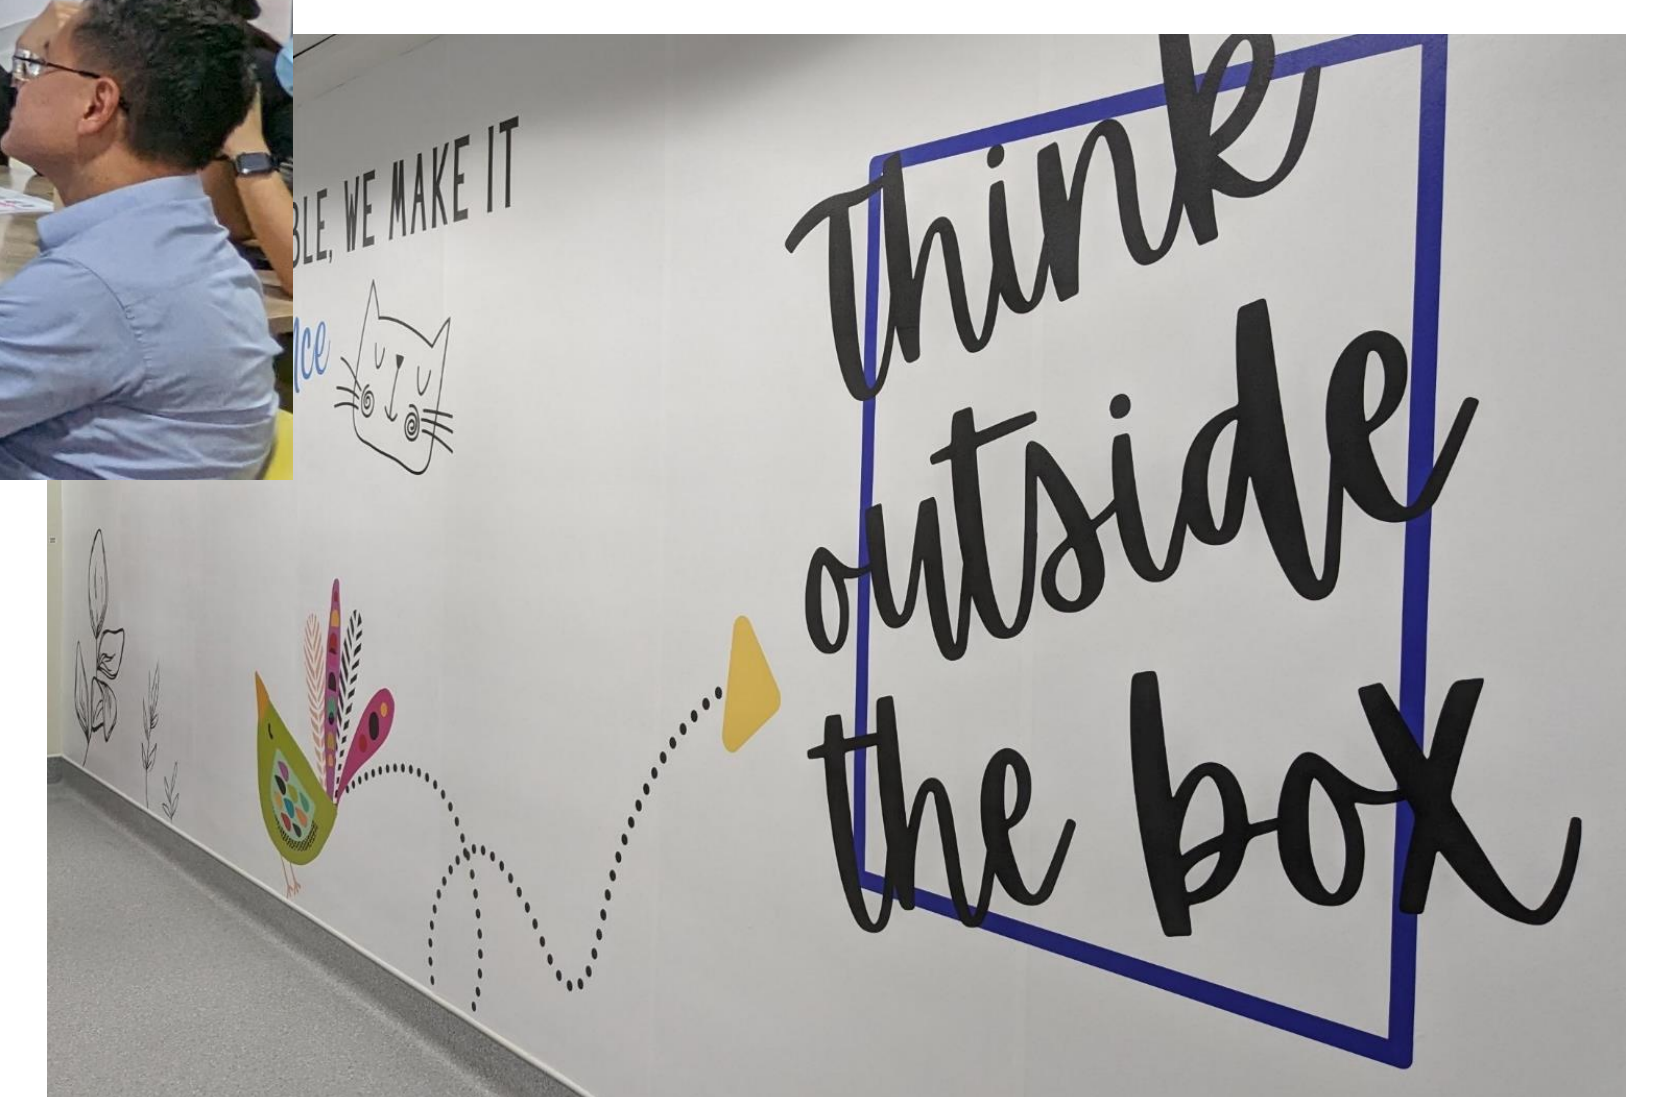 BLE, WE MAKE IT
nce
Think
outside
the box